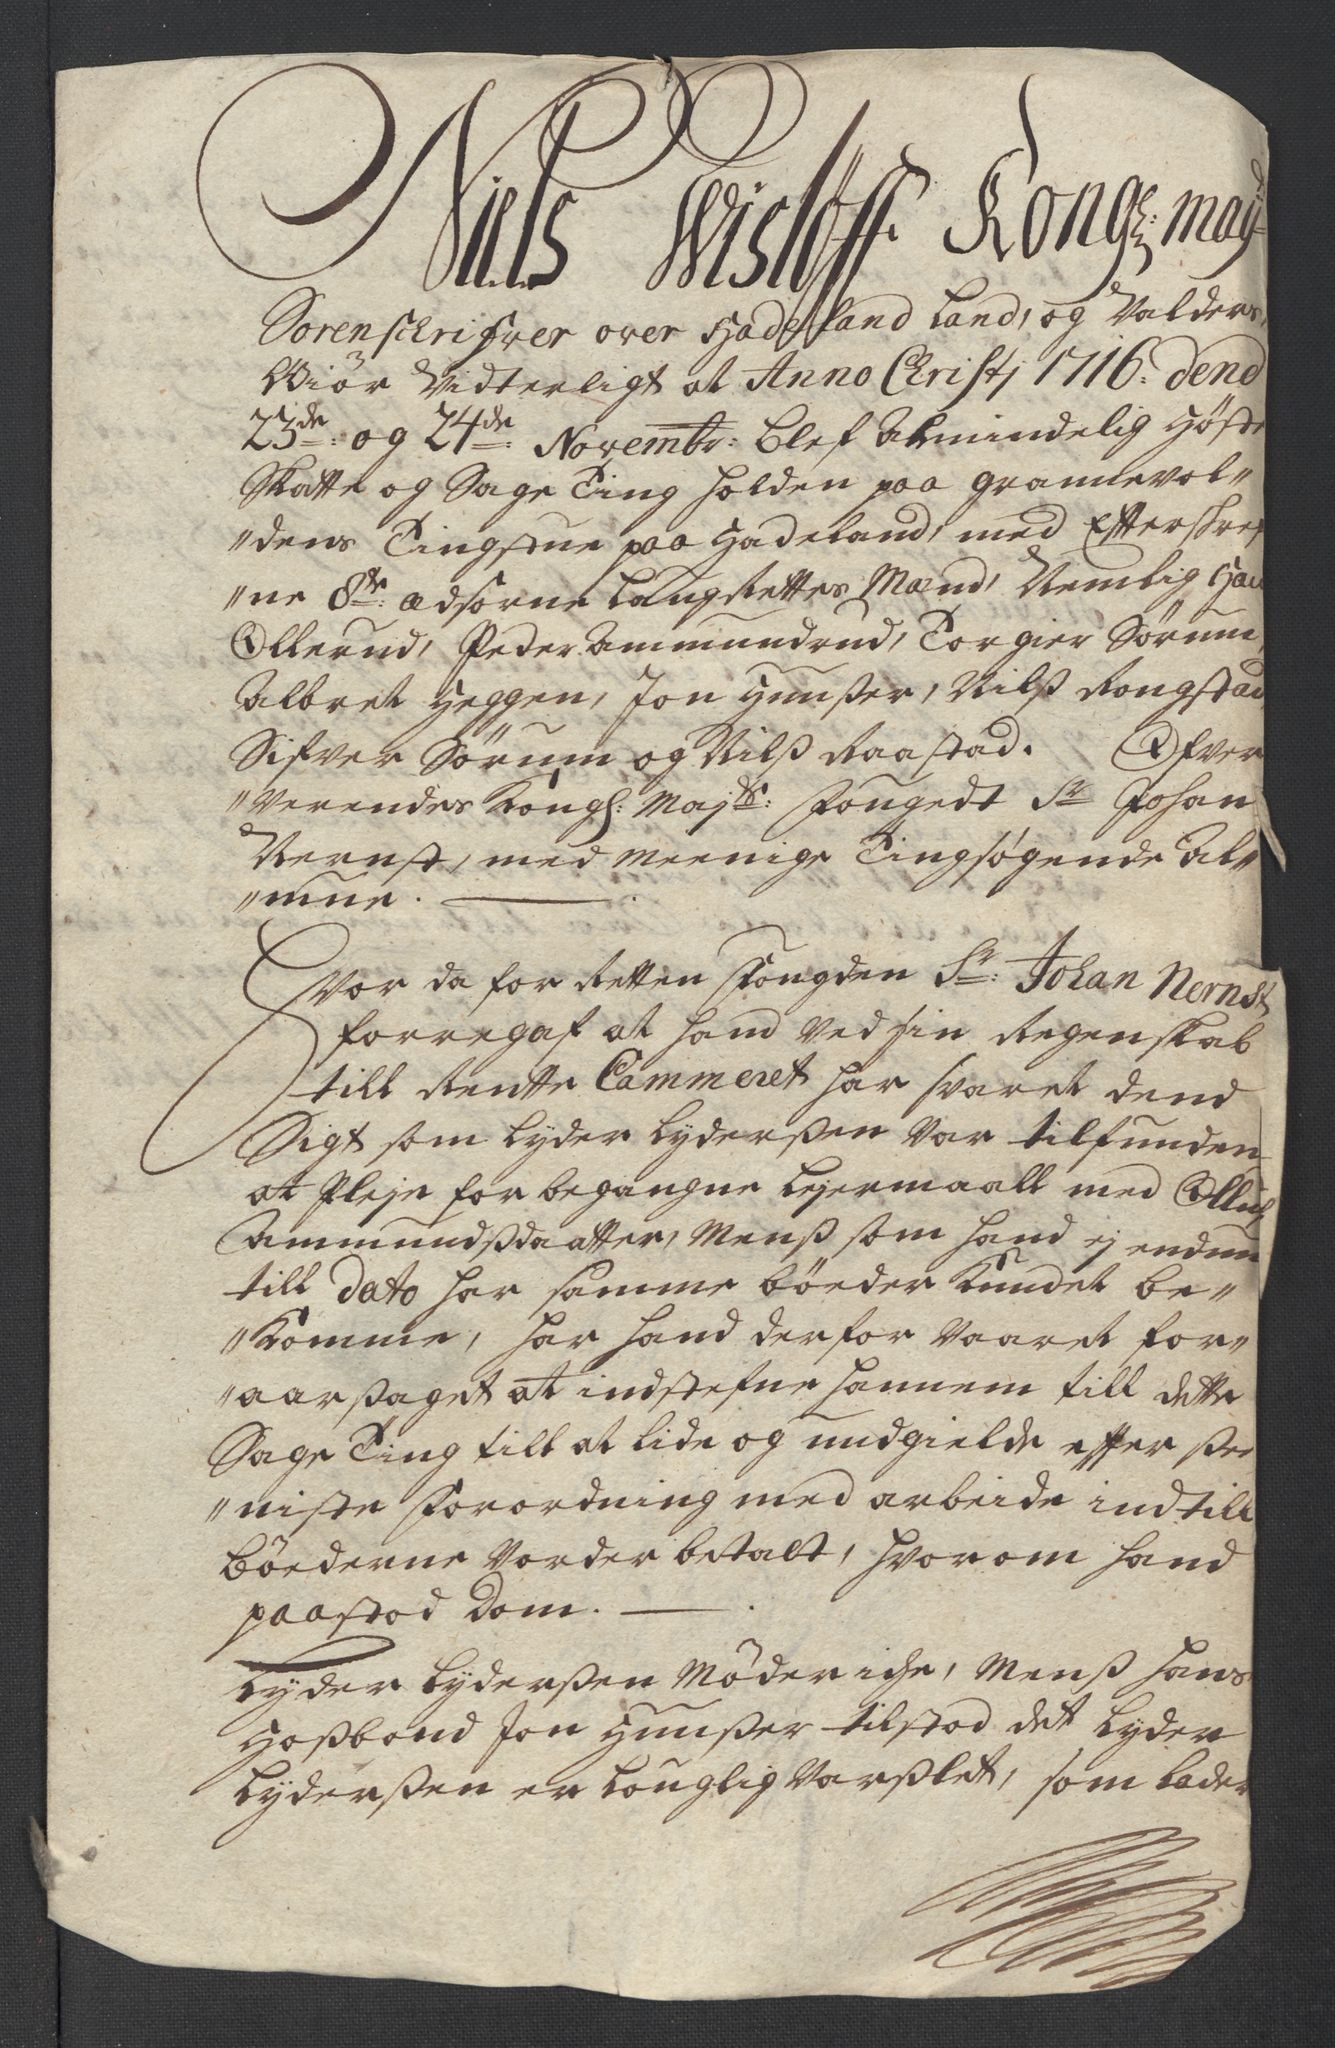 Niels Wisløff Kongl: may
Sorenschrifver over Hadeland Land, og Valders,
Giör Vidterligt at Anno Christj 1716. dend
23de: og 24de: Novembr: blef Almindelig Høste
Skatte og Sage Ting holden paa Gramevol"
"dens Tingstue paa Hadeland, med Efterskref
"ne 8te: ædsorne Laugrettes Mænd, Nemlig
Ollerud, Peder Ammundrud, Torgier Sørum,
Albret Heggen, Jon Hunßer, Nilß Rongstad
Sifver Sørum og Nilß Raastad. Ofver
"Verendes Kongl: Majts: Fougedt Sr Johan
Nernst, med meenige Tingsøgende Al"
"mue.
Hvor da for Retten Fougden Sr: Johan Nernst
forregaf at hand Ved sin Regenskab
till Rentte Cammeret har svaret dend
Sigt som Lyder Lyderßen Var tilfunden
at Pleje for begangne Lejermaall med
Ammundßdaatter, Menß som hand ej endnu
till dato har samme böeder Kundet be"
"Komme, har hand derfor Vaaret for"
"aarßaget at indstefne hannem till dette
Sage Ting till at lide og undgielde effter
"niste Forordning med arbeide indtill
böederne Vorder betalt, hvorom hand
paastod Dom.
Lyder Lyderßen Möder iche, Menß hans
Hoßbond Jon Hunßer tilstod det Lyder
Lyderßen er Louglig Varßlet, som lader